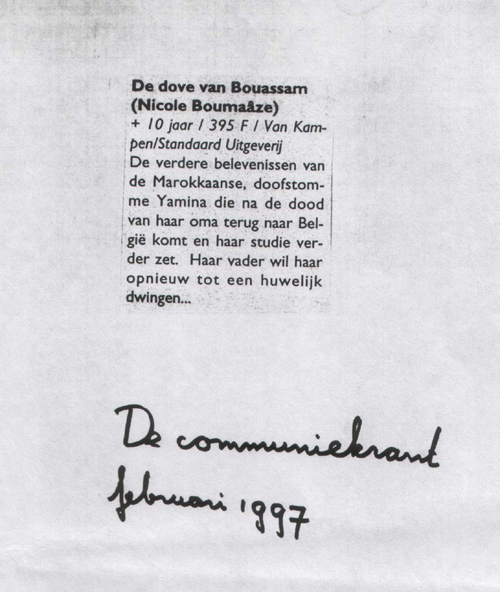 De dove van Bouassam
(Nicole Boumaâze)
+ 10 jaar / 395 F / Van Kam-
pen/Standaard Uitgeverij
De verdere belevenissen van
de Marokkaanse, doofstom-
me Yamina die na de dood
van haar oma terug naar Bel-
gië komt en haar studie ver-
der zet. Haar vader wil haar
opnieuw tot een huwelijk
dwingen...
De communiekrant
februari 1997